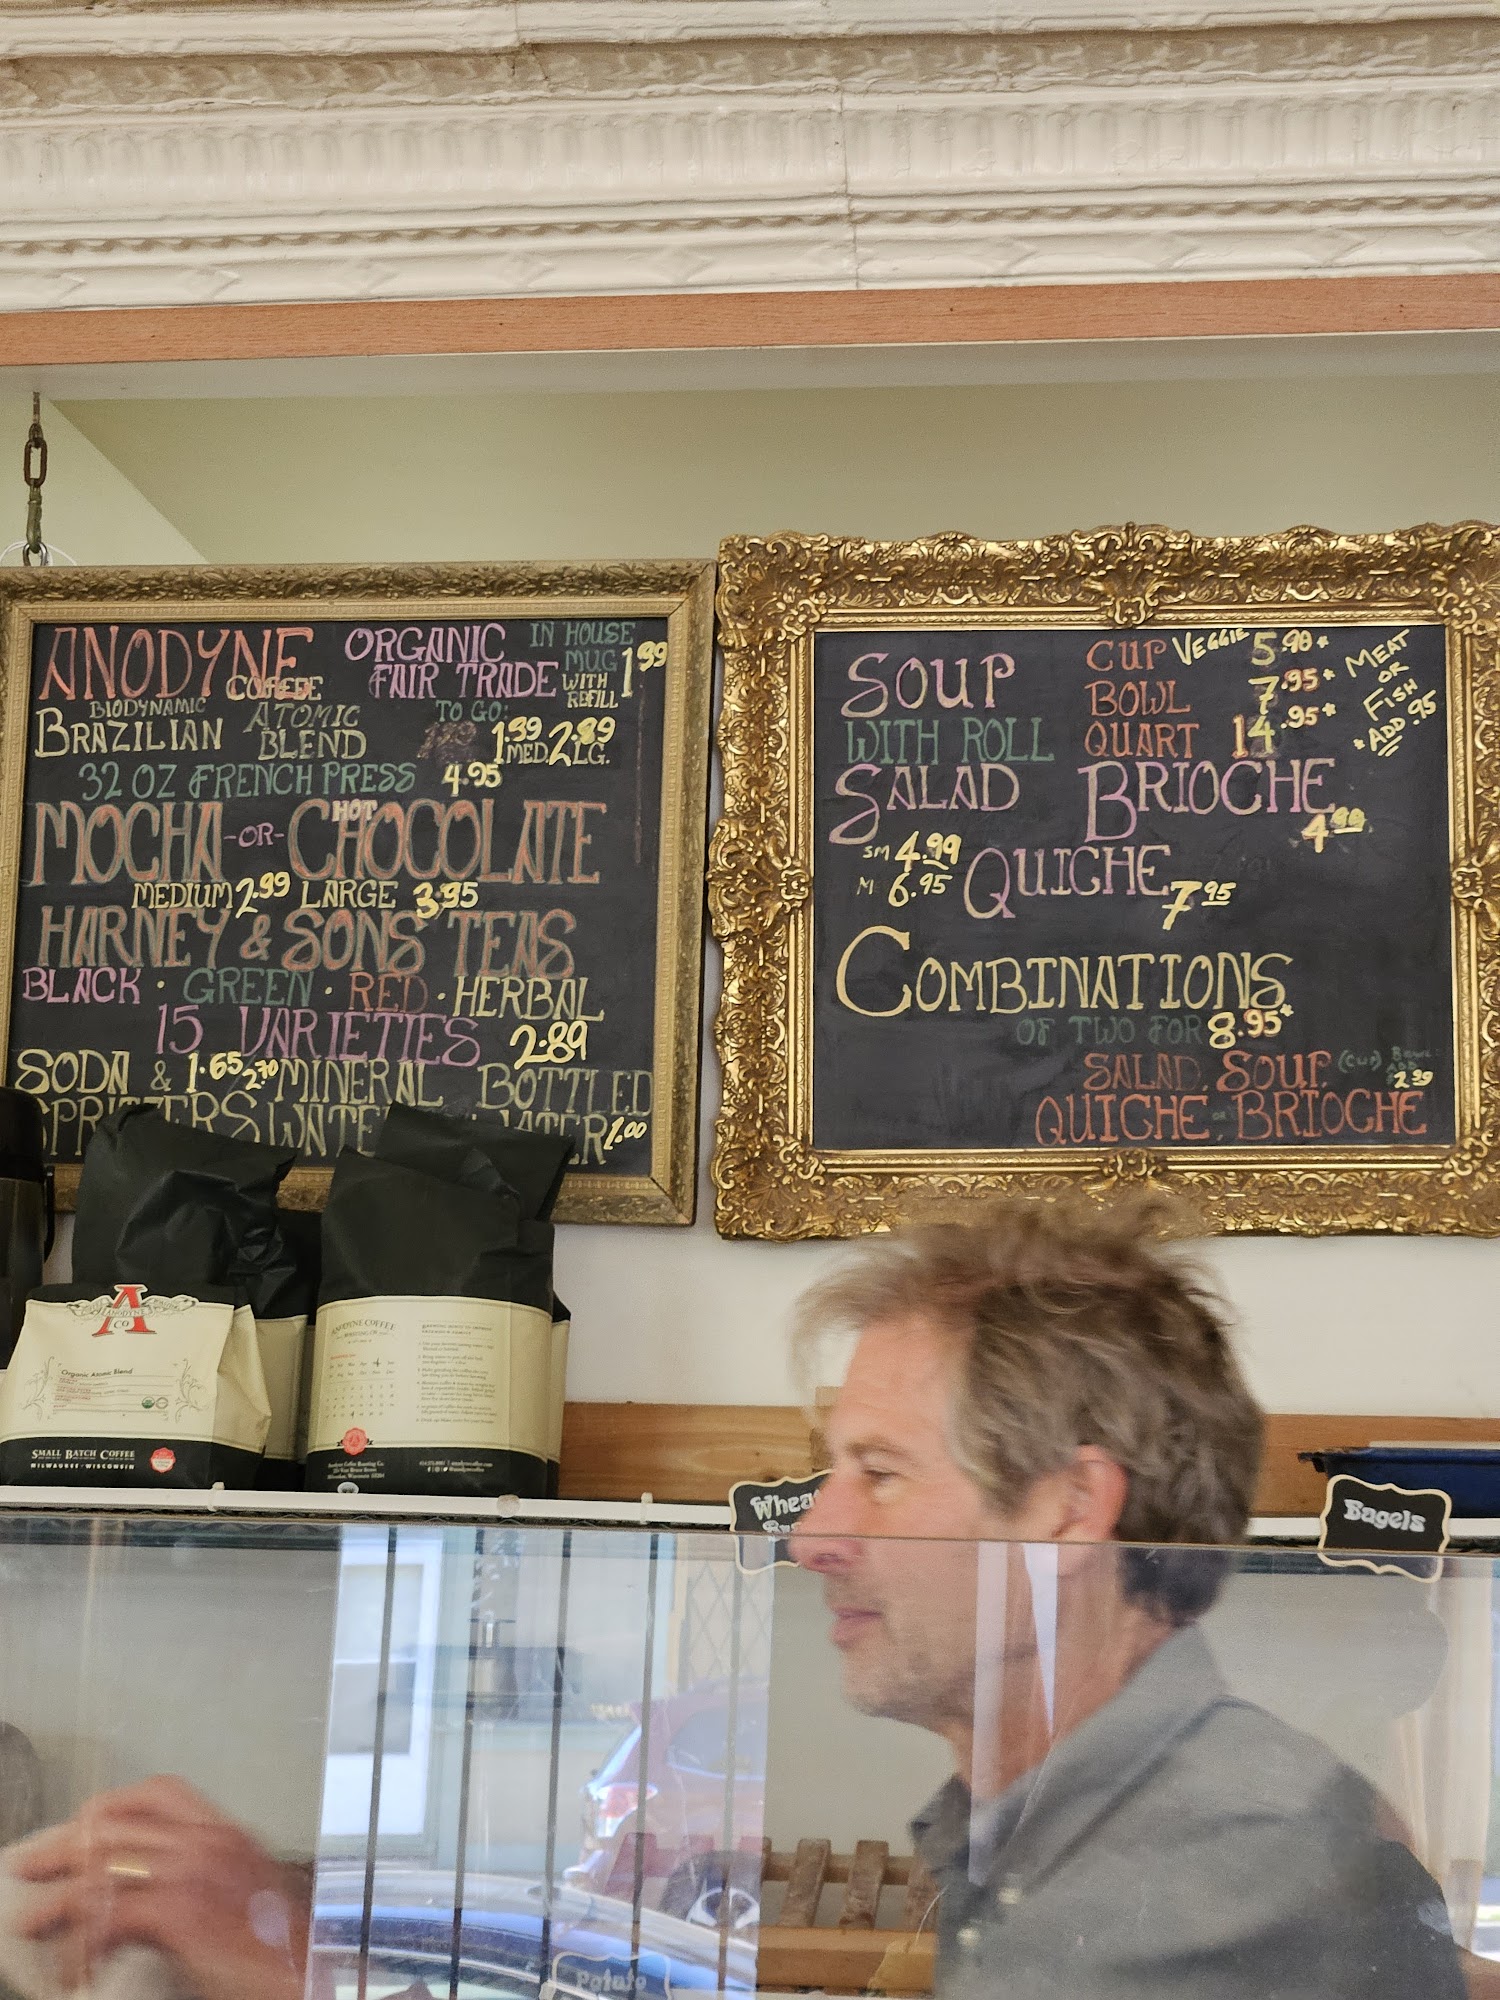 ANODYNE
COFFEE
ORGANIC
FAIR TRADE
IN HOUSE
MUG 1.99
WITH
REFILL
BIODYNAMIC
BRAZILIAN
ATOMIC
BLEND
TO GO:
1.99 2.89
MED. LG.
32 OZ FRENCH PRESS 4.95
HOT
MOCHA -OR- CHOCOLATE
MEDIUM 2.99 LARGE 3.95
HARNEY & SONS TEAS
BLACK · GREEN · RED · HERBAL
15 VARIETIES 2.89
SODA & 1.65 2.70 MINERAL BOTTLED
SPRITZERS WATER 1.00
SOUP
WITH ROLL
CUP VEGGIE 5.98*
BOWL 7.95*
QUART 14.95*
MEAT
OR
FISH
*ADD .95
SALAD
SM 4.99
M 6.95
BRIOCHE
4.99
QUICHE
7.95
COMBINATIONS
OF TWO FOR 8.95*
SALAD, SOUP, (CUP) BOWL
ADD
2.39
QUICHE OR BRIOCHE
A
ANODYNE
CO
Organic Atomic Blend
SMALL BATCH COFFEE
MILWAUKEE · WISCONSIN
ANODYNE COFFEE
ROASTING CO.
Anodyne Coffee Roasting Co.
Milwaukee, Wisconsin
Bagels
Potato